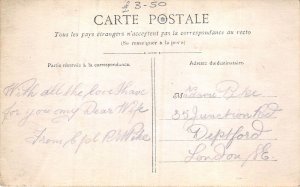 £3-50
CARTE POSTALE
Tous les pays étrangers n'acceptent pas la correspondance au recto
(Se renseigner à la poste)
Partie réservée à la correspondance.
Adresse du destinataire.
With all the love I have
for you my Dear Wife
From Cpl
35 Junction Rd
Deptford
London, SE.